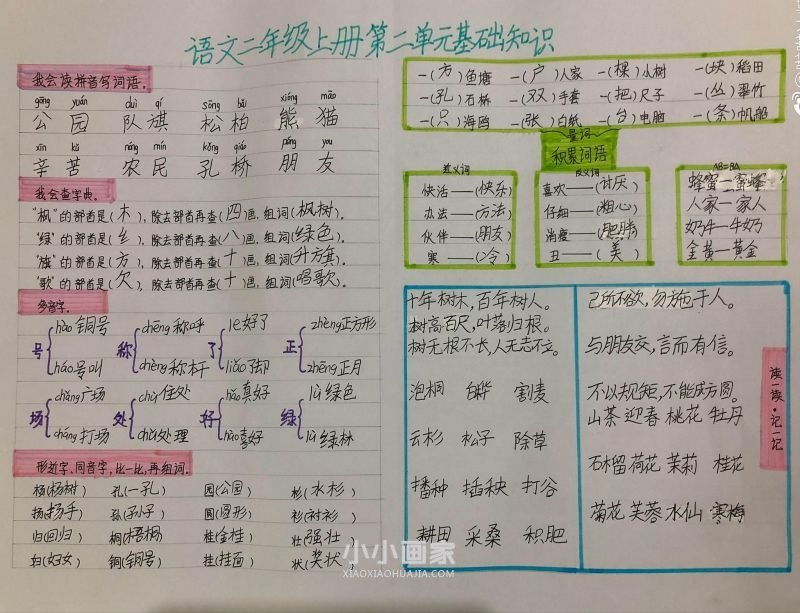 语文二年级上册第二单元基础知识
我会读拼音写词语。
gōng yuán duì qí sōng bǎi xióng māo
公园 队旗 松柏 熊猫
xīn kǔ nóng mín kǒng qiáo péng you
辛苦 农民 孔桥 朋友
我会查字典。
"枫"的部首是(木), 除去部首再查(四)画, 组词(枫树)。
"绿"的部首是(纟), 除去部首再查(八)画, 组词(绿色)。
"旗"的部首是(方), 除去部首再查(十)画, 组词(升方旗)。
"歌"的部首是(欠), 除去部首再查(十)画, 组词(唱歌)。
多音字。
号 hào 铜号 háo 号叫
称 chēng 称呼 chèng 称杆
了 le 好了 liǎo 了却
正 zhèng 正方形 zhēng 正月
场 chǎng 广场 cháng 打场
处 chù 住处 chǔ 处理
好 hǎo 真好 hào 喜好
绿 lǜ 绿色 lù 绿林
形近字、同音字,比一比,再组词。
杨(杨树) 孔(一孔) 园(公园) 杉(水杉)
扬(扬手) 孙(孙子) 圆(圆形) 衫(衬衫)
归(回归) 桐(梧桐) 桂(金桂) 壮(强壮)
妇(妇女) 铜(铜号) 挂(挂面) 状(奖状)
一(方)鱼塘 一(户)人家 一(棵)小树 一(块)稻田
一(孔)石桥 一(双)手套 一(把)尺子 一(丛)翠竹
一(只)海鸥 一(张)白纸 一(台)电脑 一(条)帆船
量词
积累词语
近义词
快活——(快乐)
办法——(方法)
伙伴——(朋友)
寒——(冷)
反义词
喜欢——(讨厌)
仔细——(粗心)
消瘦——(肥胖)
丑——(美)
AB—BA
蜂蜜—蜜蜂
人家—家人
奶牛—牛奶
金黄—黄金
十年树木,百年树人。
树高百尺,叶落归根。
树无根不长,人无志不立。
泡桐 白桦 割麦
云杉 松子 除草
播种 插秧 打谷
耕田 采桑 积肥
己所不欲,勿施于人。
与朋友交,言而有信。
不以规矩,不能成方圆。
山茶 迎春 桃花 牡丹
石榴 荷花 茉莉 桂花
菊花 芙蓉 水仙 寒梅
读一读·记一记
小小画家
XIAOXIAOHUAJIA.COM